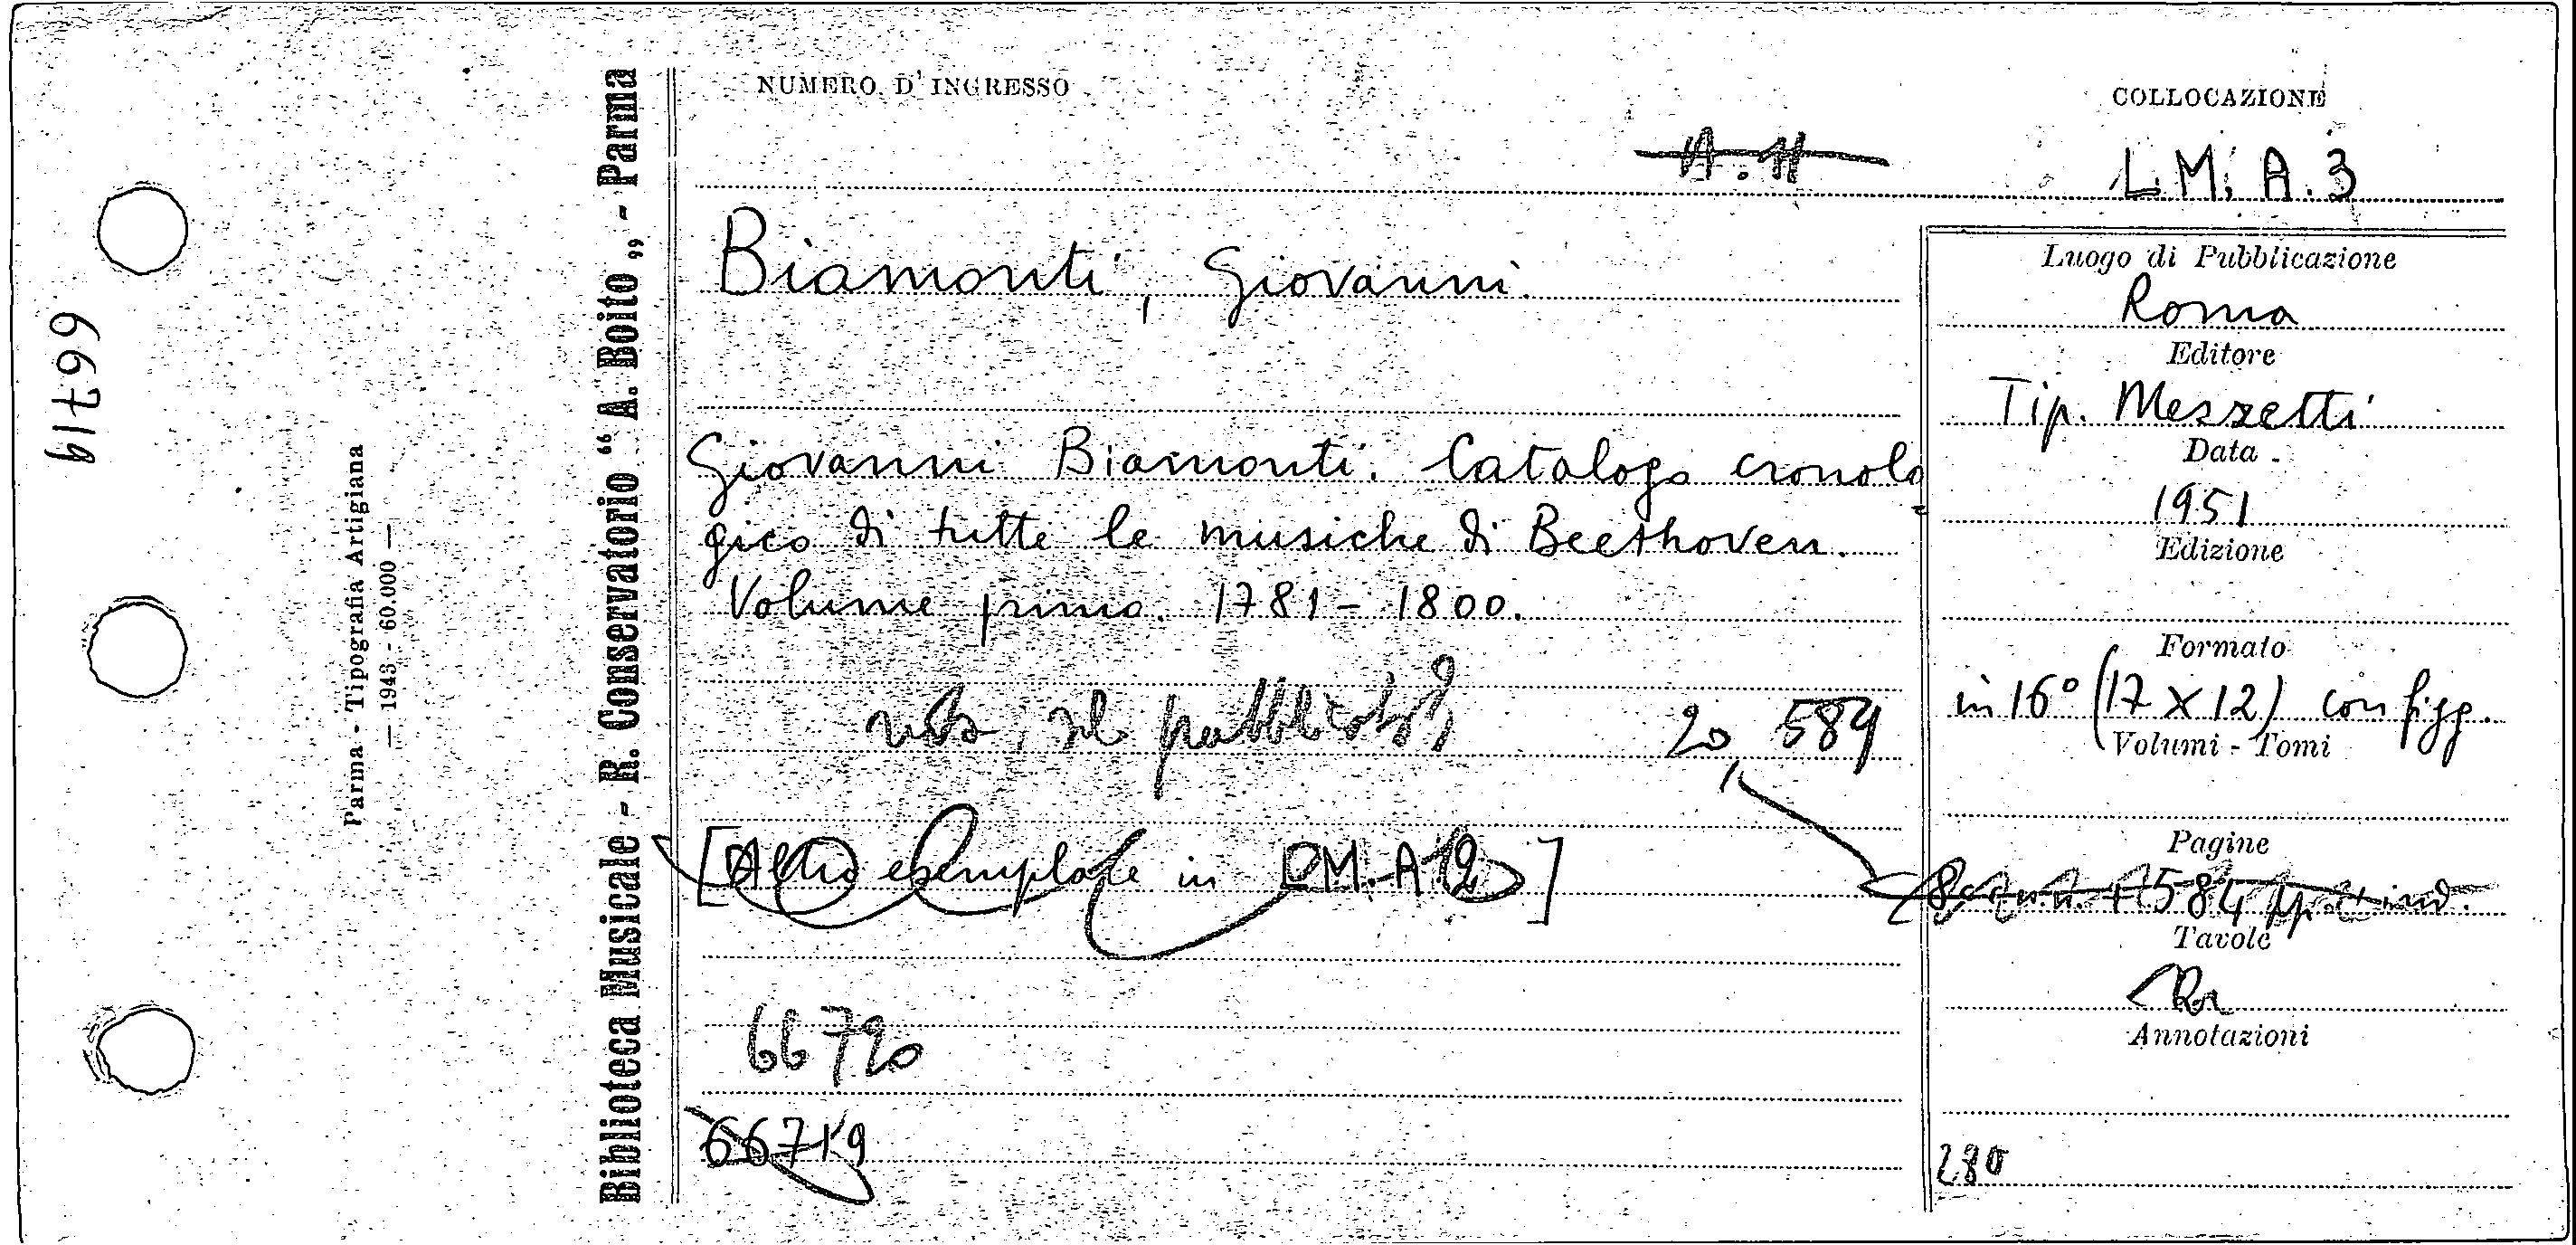 NUMERO D'INGRESSO
COLLOCAZIONE
A. H
L.M. A. 3
Biamonti, Giovanni.
Giovanni Biamonti. Catalogo cronolo=
gico di tutte le musiche di Beethoven.
Volume primo. 1781 - 1800.
20, 584
[Altro esemplare in L.M.-A 12]
66720
66719
Luogo di Pubblicazione
Roma
Editore
Tip. Mezzetti
Data
1951
Edizione
Formato
in 16° (17 X 12) con figg.
Volumi - Tomi
Pagine
584
Tavole
Annotazioni
280
Biblioteca Musicale - R. Conservatorio “ A. Boito „ - Parma
Parma - Tipografia Artigiana
— 1943 - 60.000 —
66719